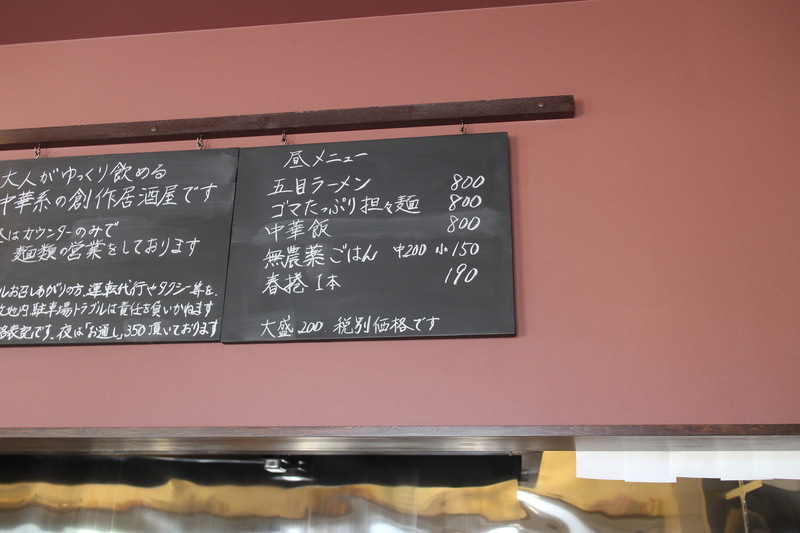 大人がゆっくり飲める
中華系の創作居酒屋です
はカウンターのみで
麺類の営業をしております
お召しあがりの方、運転代行やタクシー等を、
地内、駐車場トラブルは責任を負いかねます
表記です。夜は「お通し」350頂いております
昼メニュー
五目ラーメン 800
ゴマたっぷり担々麺 800
中華飯 800
無農薬ごはん 中200 小150
春捲 1本 190
大盛200. 税別価格です